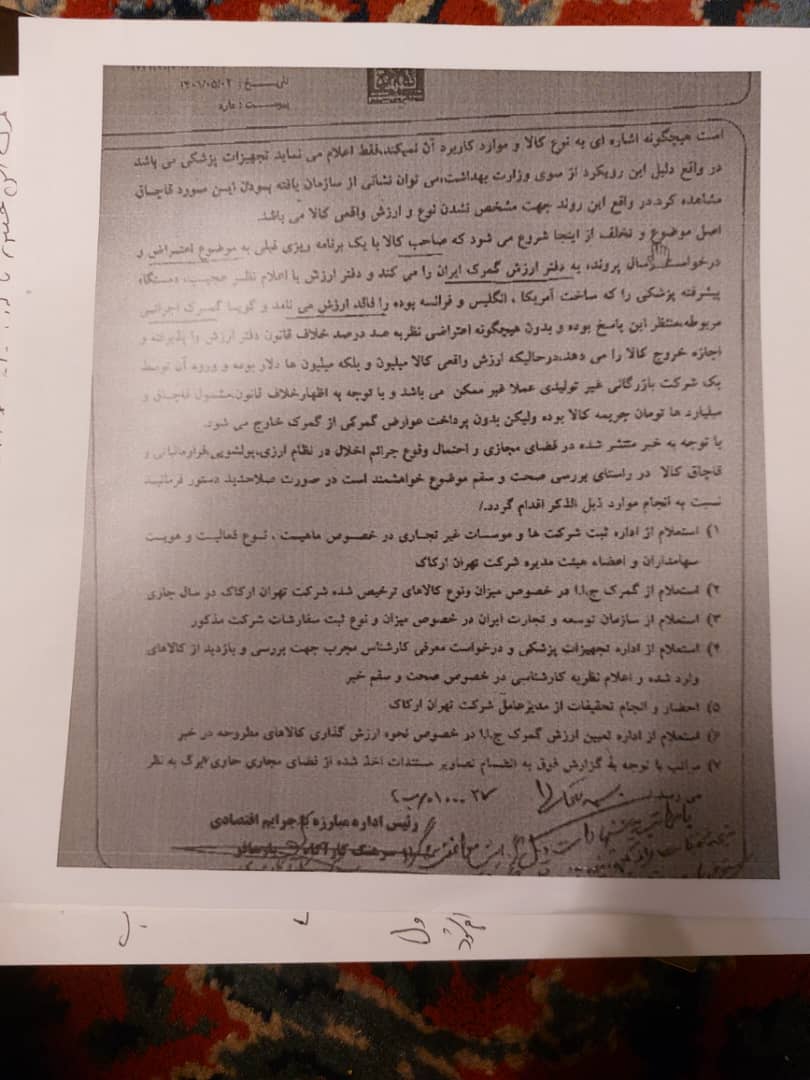 تاریـــخ : ۱۴۰۱/۰۵/۰۲
پیوست : دارد
است هیچگونه اشاره ای به نوع کالا و موارد کاربرد آن نمیکند،فقط اعلام می نماید تجهیزات پزشکی می باشد
در واقع دلیل این رویکرد از سوی وزارت بهداشت،می توان نشانی از سازمان یافته بـودن ایـن مـورد قاچـاق
مشاهده کرد.در واقع این روند جهت مشخص نشدن نوع و ارزش واقعی کالا می باشد.
اصل موضوع و تخلف از اینجا شروع می شود که صاحب کالا با یک برنامه ریزی قبلی به موضوع اعتـراض و
درخواست ارسال پرونده به دفتر ارزش گمرک ایران را می کند و دفتر ارزش با اعلام نظـر عجیـب، دستگاه
پیشرفته پزشکی را که ساخت آمریکا ، انگلیس و فرانسه بوده را فاقد ارزش می نامد و گویـا گمـرک اجرائـی
مربوطه،منتظر این پاسخ بوده و بدون هیچگونه اعتراضی نظریه صد درصد خلاف قانون دفتر ارزش را پذیرفته و
اجازه خروج کالا را می دهد.درحالیکه ارزش واقعی کالا میلیون و بلکه میلیون ها دلار بوده و ورود آن توسط
یک شرکت بازرگانی غیر تولیدی عملا غیر ممکن می باشد و با توجه به اظهارخلاف قانون،مشمول قاچـاق و
میلیارد ها تومان جریمه کالا بوده ولیکن بدون پرداخت عوارض گمرکی از گمرک خارج می شود.
با توجه به خبر منتشر شده در فضای مجازی و احتمال وقوع جرائم اخلال در نظام ارزی،پولشویی،فرارمالیاتی و
قاچاق کالا در راستای بررسی صحت و سقم موضوع خواهشمند است در صورت صلاحدید دستور فرمائیـد
نسبت به انجام موارد ذیل الذکر اقدام گردد./
۱) استعلام از اداره ثبت شرکت ها و موسسات غیر تجاری در خصوص ماهیـت ، نـوع فعالیـت و هویـت
سهامداران و اعضاء هیئت مدیره شرکت تهران ارکاک
۲) استعلام از گمرک ج.ا.ا در خصوص میزان ونوع کالاهای ترخیص شده شرکت تهران ارکاک در سال جاری
۳) استعلام از سازمان توسعه و تجارت ایران در خصوص میزان و نوع ثبت سفارشات شرکت مذکور
۴) استعلام از اداره تجهیزات پزشکی و درخواست معرفی کارشناس مجرب جهت بررسی و بازدید از کالاهای
وارد شده و اعلام نظریه کارشناسی در خصوص صحت و سقم خبر
۵) احضار و انجام تحقیقات از مدیرعامل شرکت تهران ارکاک
۶) استعلام از اداره تعیین ارزش گمرک ج.ا.ا در خصوص نحوه ارزش گذاری کالاهای مطروحه در خبر
۷) مراتب با توجه به گزارش فوق به انضمام تصاویر مستندات اخذ شده از فضای مجازی حاوی ۷برگ به نظر
می رسد
رئیس اداره مبارزه با جرایم اقتصادی
سرهنگ کارآگاه